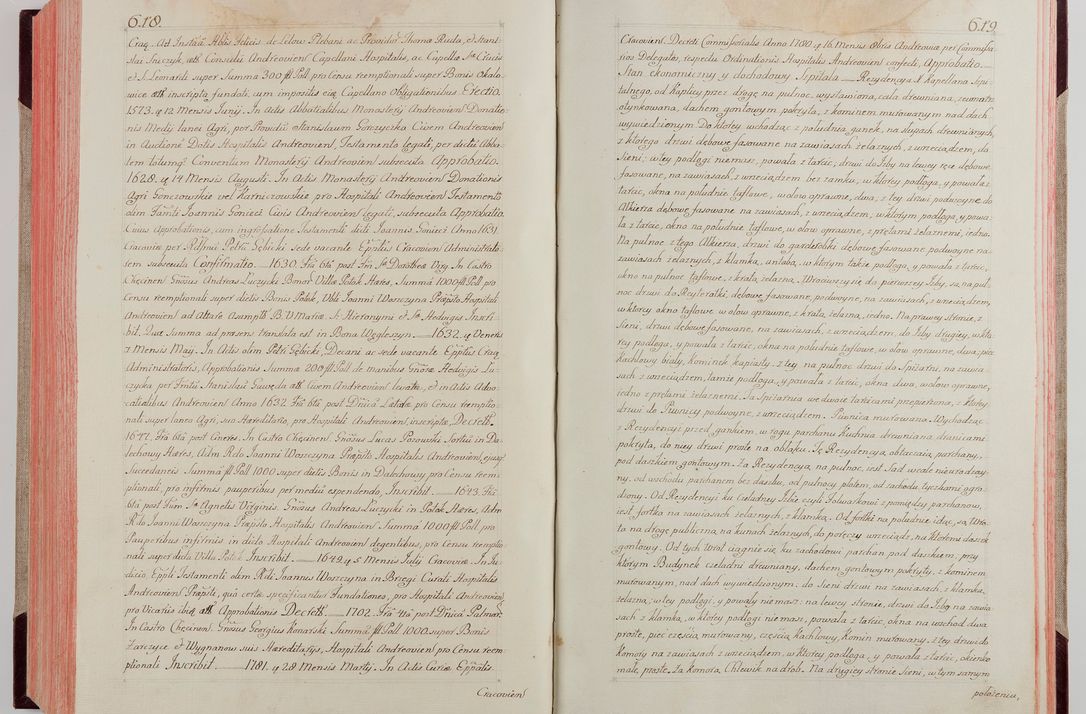 618.
Crac̄. Ad Instām Abtis Felicis de Lelow Plebani ac Providor̄ Thomæ Ruda, et Stani-
slai Inczyk, Consulū Andreovien̄ Capellani Hospitalis, ac Capellæ Stæ Crucis
et S. Leonardi super Summa 300 fl Poll pro Censu reemptionali super Bonis Okolo-
wice inscripta fundati, cum impositis eiq Capellano Obligationibus Erectio.
1573. q 12. Mensis Junij. In Actis Abbatialibus Monasterij Andreovien̄ Donatio-
nis Medij lanei Agri, per Provdū Stanislaum Gorczyczka Civem Andreovien̄
in Auctione Dotis Hospitalis Andreovien̄, Testamento legati, per dictū Abba-
tem totumq Conventum Monasterij Andreovien̄ subsecuta Approbatio.
1628. q 14 Mensis Augusti. In Actis Monasterij Andreovien̄ Donationis
Agri Gonczowskie vel Karniczowskie pro Hospitali Andreovien̄ Testamento
olim Famti Joannis Goniecz Civis Andreovien̄ legati, subsecuta Approbatio
Cuius Approbationis, cum ingrossatione Testamenti dicti Joannis Goniecz Anno 1631.
Cracoviæ per Rdssmū Petrū Gębicki sede vacante Epptūs Cracovien̄ Administrato-
rem subsecuta Confirmatio. — 1630. Fra 6ta post Fm Stæ Dorotheæ Virg. In Castro
Chęcinen̄ Gnōsus Andreas Luczycki Bonor̄ Villæ Potok Hæres, Summā 1000 fl Poll pro
Censu reemptionali super dictis Bonis Potok, Vbli Joanni Woszczyna Præpto Hospitali
Andreovien̄ ad Altare Assumptæ B. V. Mariæ S. Hieronymi et Stæ Hedvigis Inscri-
bit. Quæ Summa ad præsens translata est in Bona Węgleszyn. — 1632. q Veneris
7 Mensis Maij. In Actis olim Petri Gębicki, Decani ac sede vacante Epptūs Crac̄.
Administratoris, Approbationis Summæ 200 fl Poll de manibus Gnōsæ Hedvigis Lu-
czycka per Fmtū Stanislaū Gawęda Civem Andreovien̄ levatæ, et in Actis Advo-
catialibus Andreovien̄ Anno 1632 Fra 6ta post Dnīca Lætare pro Censu reemptio-
nali super laneo Agri, suo Hæreditario, pro Hospitali Andreovien̄, inscriptæ, Decretū.
1677. Fra 6ta post Cineres. In Castro Chęcinen̄ Gnōsus Lucas Pozowski Sortiū in Da-
lechowy Hæres, Adm Rdo Joanni Woszczyna Præpto Hospitalis Andreovien̄, ejusq
Succedaneis Summā fl Poll 1000 super dictis Bonis in Dalechowy pro Censu reem-
ptionali, pro infirmis pauperibus per mediū expendendo, Inscribit. — 1643. Fra
6ta post Fum Stæ Agnetis Virginis, Gnōsus Andreas Luczycki in Potok Hæres, Adm
Rdo Joanni Woszczyna Præpsto Hospitalis Andreovien̄ Summā 1000 fl Poll, pro
Pauperibus infirmis in dicto Hospitali Andreovien̄ degentibus, pro Censu reemptio-
nali super dicta Villa Potok Inscribit. — 1649. q 5. Mensis Julij Cracoviæ. In Ju-
dicio Epptli Testamenti olim Rdi Joannis Woszczyna in Brzegi Curati Hospitalis
Andreovien̄ Præpti, quā certæ specificantur Fundationes, pro Hospitali Andreovien̄
pro Vicarius ibiq Approbationis Decretū. — 1702. Fra 4ta post Dnīca Palmar̄.
In Castro Chęcinen̄ Gnōsus Georgius Konarski Summā fl Poll 1000. super Bonis
Żarczyce et Wygnanow suis Hæreditarijs, Hospitali Andreovien̄ pro Censu reem-
ptionali Inscribit. — 1781. q 28 Mensis Martij. In Actis Curiæ Epptlis.
Cracovien̄
619
Cracovien̄ Decreti Commissorialis Anno 1780. q 16. Mensis Obris Andreoviæ per Commissa-
rios Delegatos, respectu Ordinationis Hospitalis Andreovien̄ confecti, Approbatio. —
Stan ekonomiczny y dochodowy Szpitala. — Rezydencya X. Kapellana Szpi-
talnego, od Kaplicy przez drogę na pułnoc wystawiona, cała drewniana, zewnątrz
otynkowana, dachem gontowym pokryta, z kominem murowanym nad dach
wywiedzionym. Do ktorey wchodząc z południa ganek, na słupach drewnianych,
z ktorego drzwi dębowe fasowane na zawiasach żelaznych, z wrzeciądzem, do
Sieni, w tey podłogi niemasz, powała z tarcic; drzwi do Izby na lewey ręce dębowe
fasowane, na zawiasach, z wrzeciądzem bez zamku, w ktorey podłoga, y powała z
tarcic, okna na południe taflowe, w ołow oprawne, dwa, z tey drzwi podwoyne do
Alkierza dębowe fasowane na zawiasach, z wrzeciądzem, w ktorym podłoga, y powa-
ła z tarcic, okno na południe taflowe, w ołow oprawne, z prętami żelaznemi, iedno.
Na pułnoc z tego Alkierza, drzwi do garderobki dębowe fasowane podwoyne na
zawiasach żelaznych, z klamką, antabą, w ktorym takie podłoga, y powała z tarcic,
okno na pułnoc taflowe, z kratą żelazną. Wrociwszy się do pierwszey Izby, są na puł-
noc drzwi do Kleyteratki, dębowe fasowane, podwoyne, na zawiasach, z wrzeciądzem,
w ktorey okno taflowe w ołow oprawne, z kratą, żelazną, iedno. Na prawey stronie, z
Sieni, drzwi dębowe fasowane, na zawiasach, z wrzeciądzem, do Izby drugiey, w kto-
rey podłoga, y powała z tarcic, okna na południe taflowe, w ołow oprawne, dwa, piec
Kachlowy biały, Kominek kapiasty, z tey na pułnoc drzwi do Spiżarni, na zawia-
sach z wrzeciądzem, tamże podłoga, y powała z tarcic, okna dwa, w ołow oprawne,
iedno z prętami żelaznemi. Ta Spiżarnia we dwoie tarcicami przepierzona, z ktorey
drzwi do Piwnicy podwoyne, z wrzeciądzem. Piwnica murowana. Wychodząc
z Rezydencyi przed gankiem, w rogu parchanu Kuchnia drewniana dranicami
pokryta, do niey drzwi proste na obłąku. Tę Rezydencyą obtaczaią parchany,
pod daszkiem gontowym. Za Rezydencyą na pułnoc, iest Sad wcale nieurodzay-
ny, od wschodu parchanem bez daszku, od pułnocy płotem, od zachodu tyczkami ogro-
dzony. Od Rezydencyi ku Czeladney Izbie, czyli Folwarkowi z pomiędzy parchanow,
iest fortka na zawiasach żelaznych, z klamką. Od fortki na południe idąc, są Wro-
ta na drogę publiczną, na kunach żelaznych, do poręczy wrzeciądz, na ktorych daszek
gontowy. Od tych Wrot ciągnie się ku zachodowi parchan pod daszkiem, przy
ktorym Budynek czeladni drewniany, dachem gontowym pokryty, z kominem
murowanym, nad dach wywiedzionym; do Sieni drzwi na zawiasach, z klamką,
żelazną, w tey podłogi, y powały niemasz; na lewey stronie, drzwi do Izby na zawia-
sach z klamką, w ktorey podłogi niemasz, powała z tarcic, okna na wschod dwa
proste, piec częścią murowany, częścią Kachlowy, Komin murowany, z tey drzwi do
Komory na zawiasach z wrzeciądzem, w ktorey podłoga, y powała z tarcic, okienko
małe, proste. Za Komorą, Chlewik na drob. Na drugiey stronie Sieni, w tym samym
położeniu,